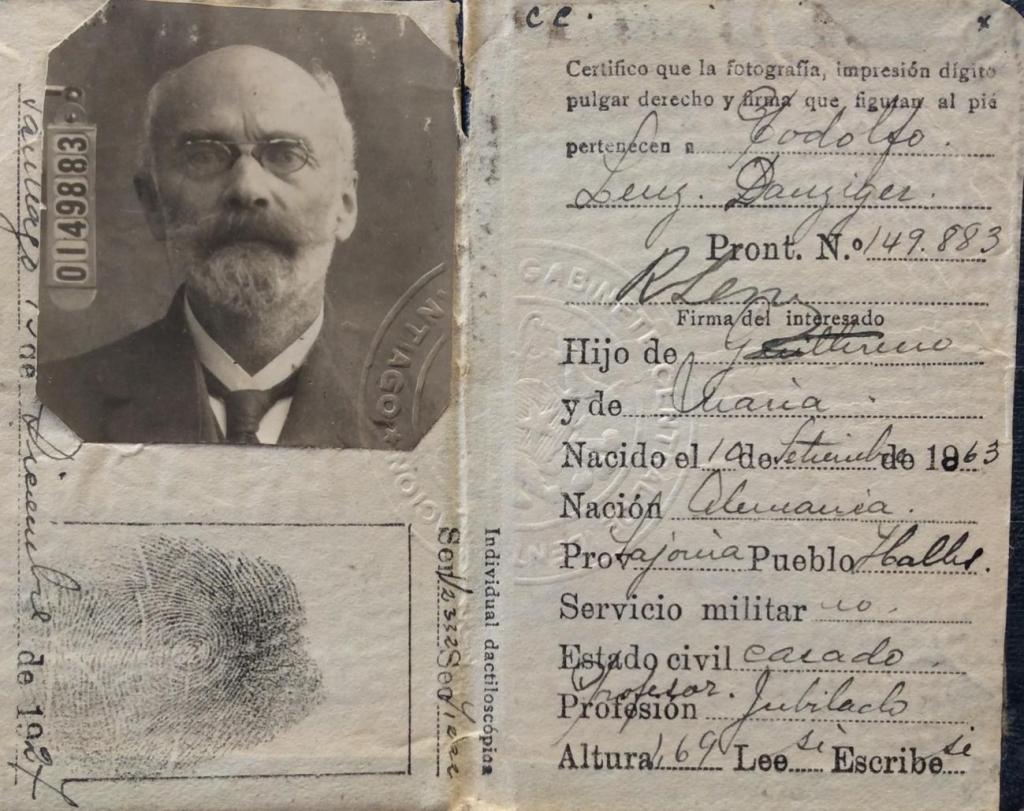 C C.
x
0149883
Santiago 15 de Diciembre de 192
Certifico que la fotografía, impresión dígito
pulgar derecho y firma que figuran al pié
pertenecen a Rodolfo
Lenz. Danziger.
Pront. N.º 149.883
R Lenz
Firma del interesado
Hijo de Guillermo
y de Maria.
Nacido el 10 de Setiembre de 1863
Nación Alemania.
Prov. Sajonia Pueblo Halle.
Servicio militar no.
Estado civil casado.
Profesor.
Profesión Jubilado
Altura 1,69 Lee si Escribe si
Individual dactiloscópica
Ser Sec
NTIAGO
CIÓN
GABINETE CENTRAL